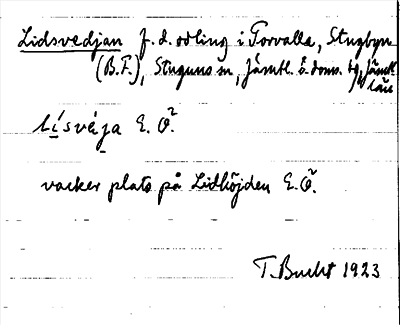 Lidsvedjan f.d. odling i Torvalla, Stugbyn
(B.F.), Stuguns sn, Jämtl. ö. doms. tg, Jämtl.
län
lísvéja E. O.²
vacker plats på Lidhöjden E. O.²
T. Bucht 1923